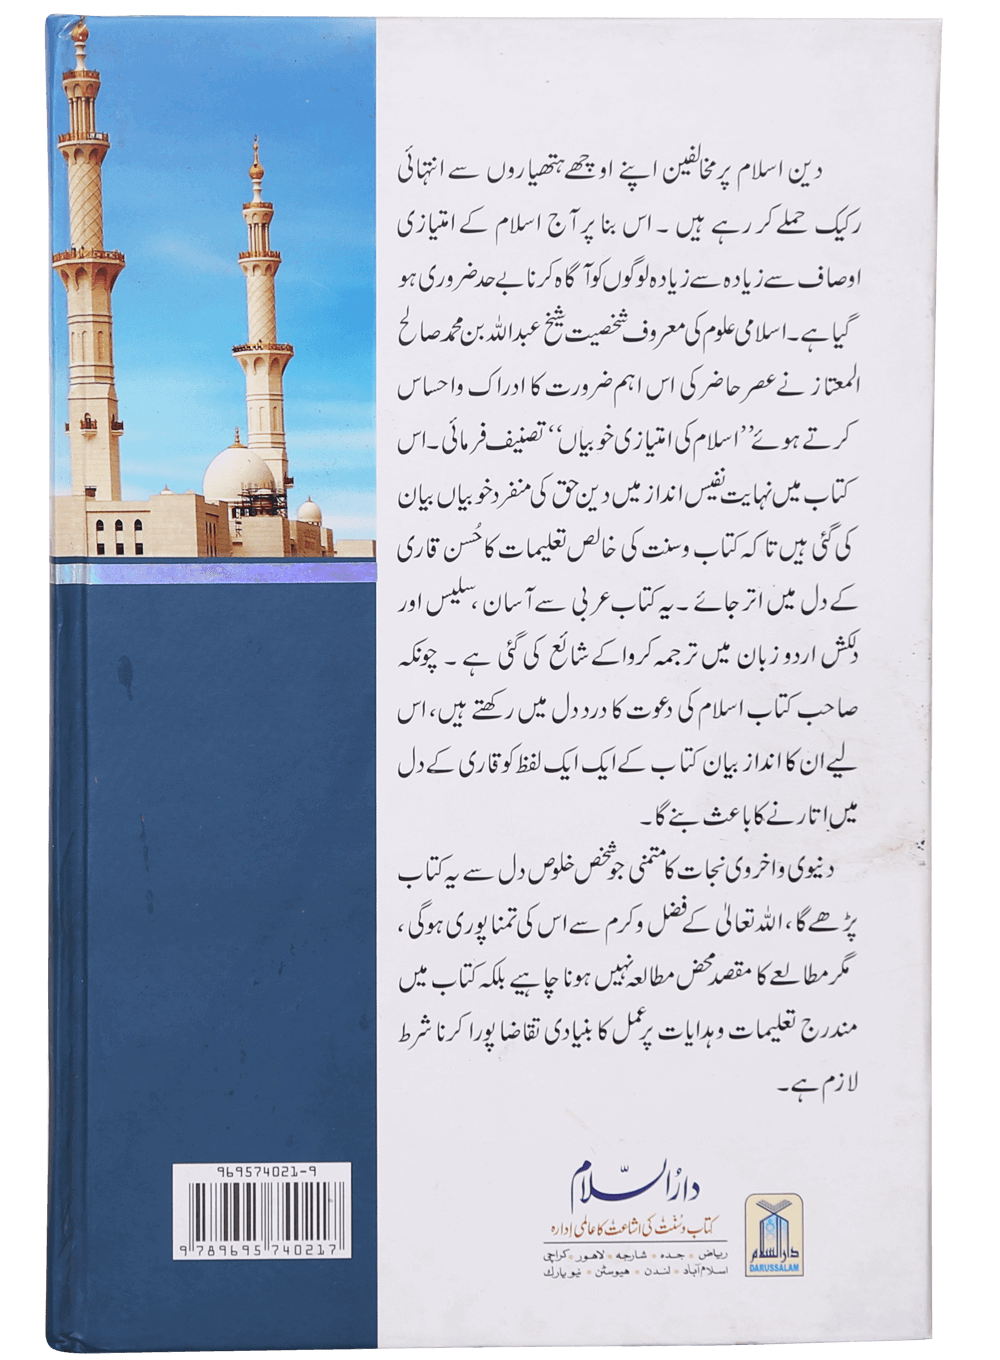 دین اسلام پر مخالفین اپنے اوچھے ہتھیاروں سے انتہائی
رکیک حملے کر رہے ہیں ۔ اس بنا پر آج اسلام کے امتیازی
اوصاف سے زیادہ سے زیادہ لوگوں کو آگاہ کرنا بے حد ضروری ہو
گیا ہے۔ اسلامی علوم کی معروف شخصیت شیخ عبداللہ بن محمد صالح
المعتاز نے عصر حاضر کی اس اہم ضرورت کا ادراک و احساس
کرتے ہوئے ’’اسلام کی امتیازی خوبیاں‘‘ تصنیف فرمائی۔ اس
کتاب میں نہایت نفیس انداز میں دین حق کی منفرد خوبیاں بیان
کی گئی ہیں تاکہ کتاب و سنت کی خالص تعلیمات کا حُسن قاری
کے دل میں اتر جائے ۔ یہ کتاب عربی سے آسان ، سلیس اور
دلکش اردو زبان میں ترجمہ کروا کے شائع کی گئی ہے ۔ چونکہ
صاحب کتاب اسلام کی دعوت کا درد دل میں رکھتے ہیں، اس
لیے ان کا انداز بیان کتاب کے ایک ایک لفظ کو قاری کے دل
میں اتارنے کا باعث بنے گا۔
دنیوی و اخروی نجات کا متمنی جو شخص خلوص دل سے یہ کتاب
پڑھے گا ، اللہ تعالیٰ کے فضل و کرم سے اس کی تمنا پوری ہوگی ،
مگر مطالعے کا مقصد محض مطالعہ نہیں ہونا چاہیے بلکہ کتاب میں
مندرج تعلیمات و ہدایات پر عمل کا بنیادی تقاضا پورا کرنا شرط
لازم ہے۔
969574021-9
9 789695 740217
دارُالسّلام
کتاب و سُنّت کی اشاعت کا عالمی اِدارہ
ریاض • جدہ • شارجہ • لاہور • کراچی
اسلام آباد • لندن • ہیوسٹن • نیویارک
دارالسلام
DARUSSALAM